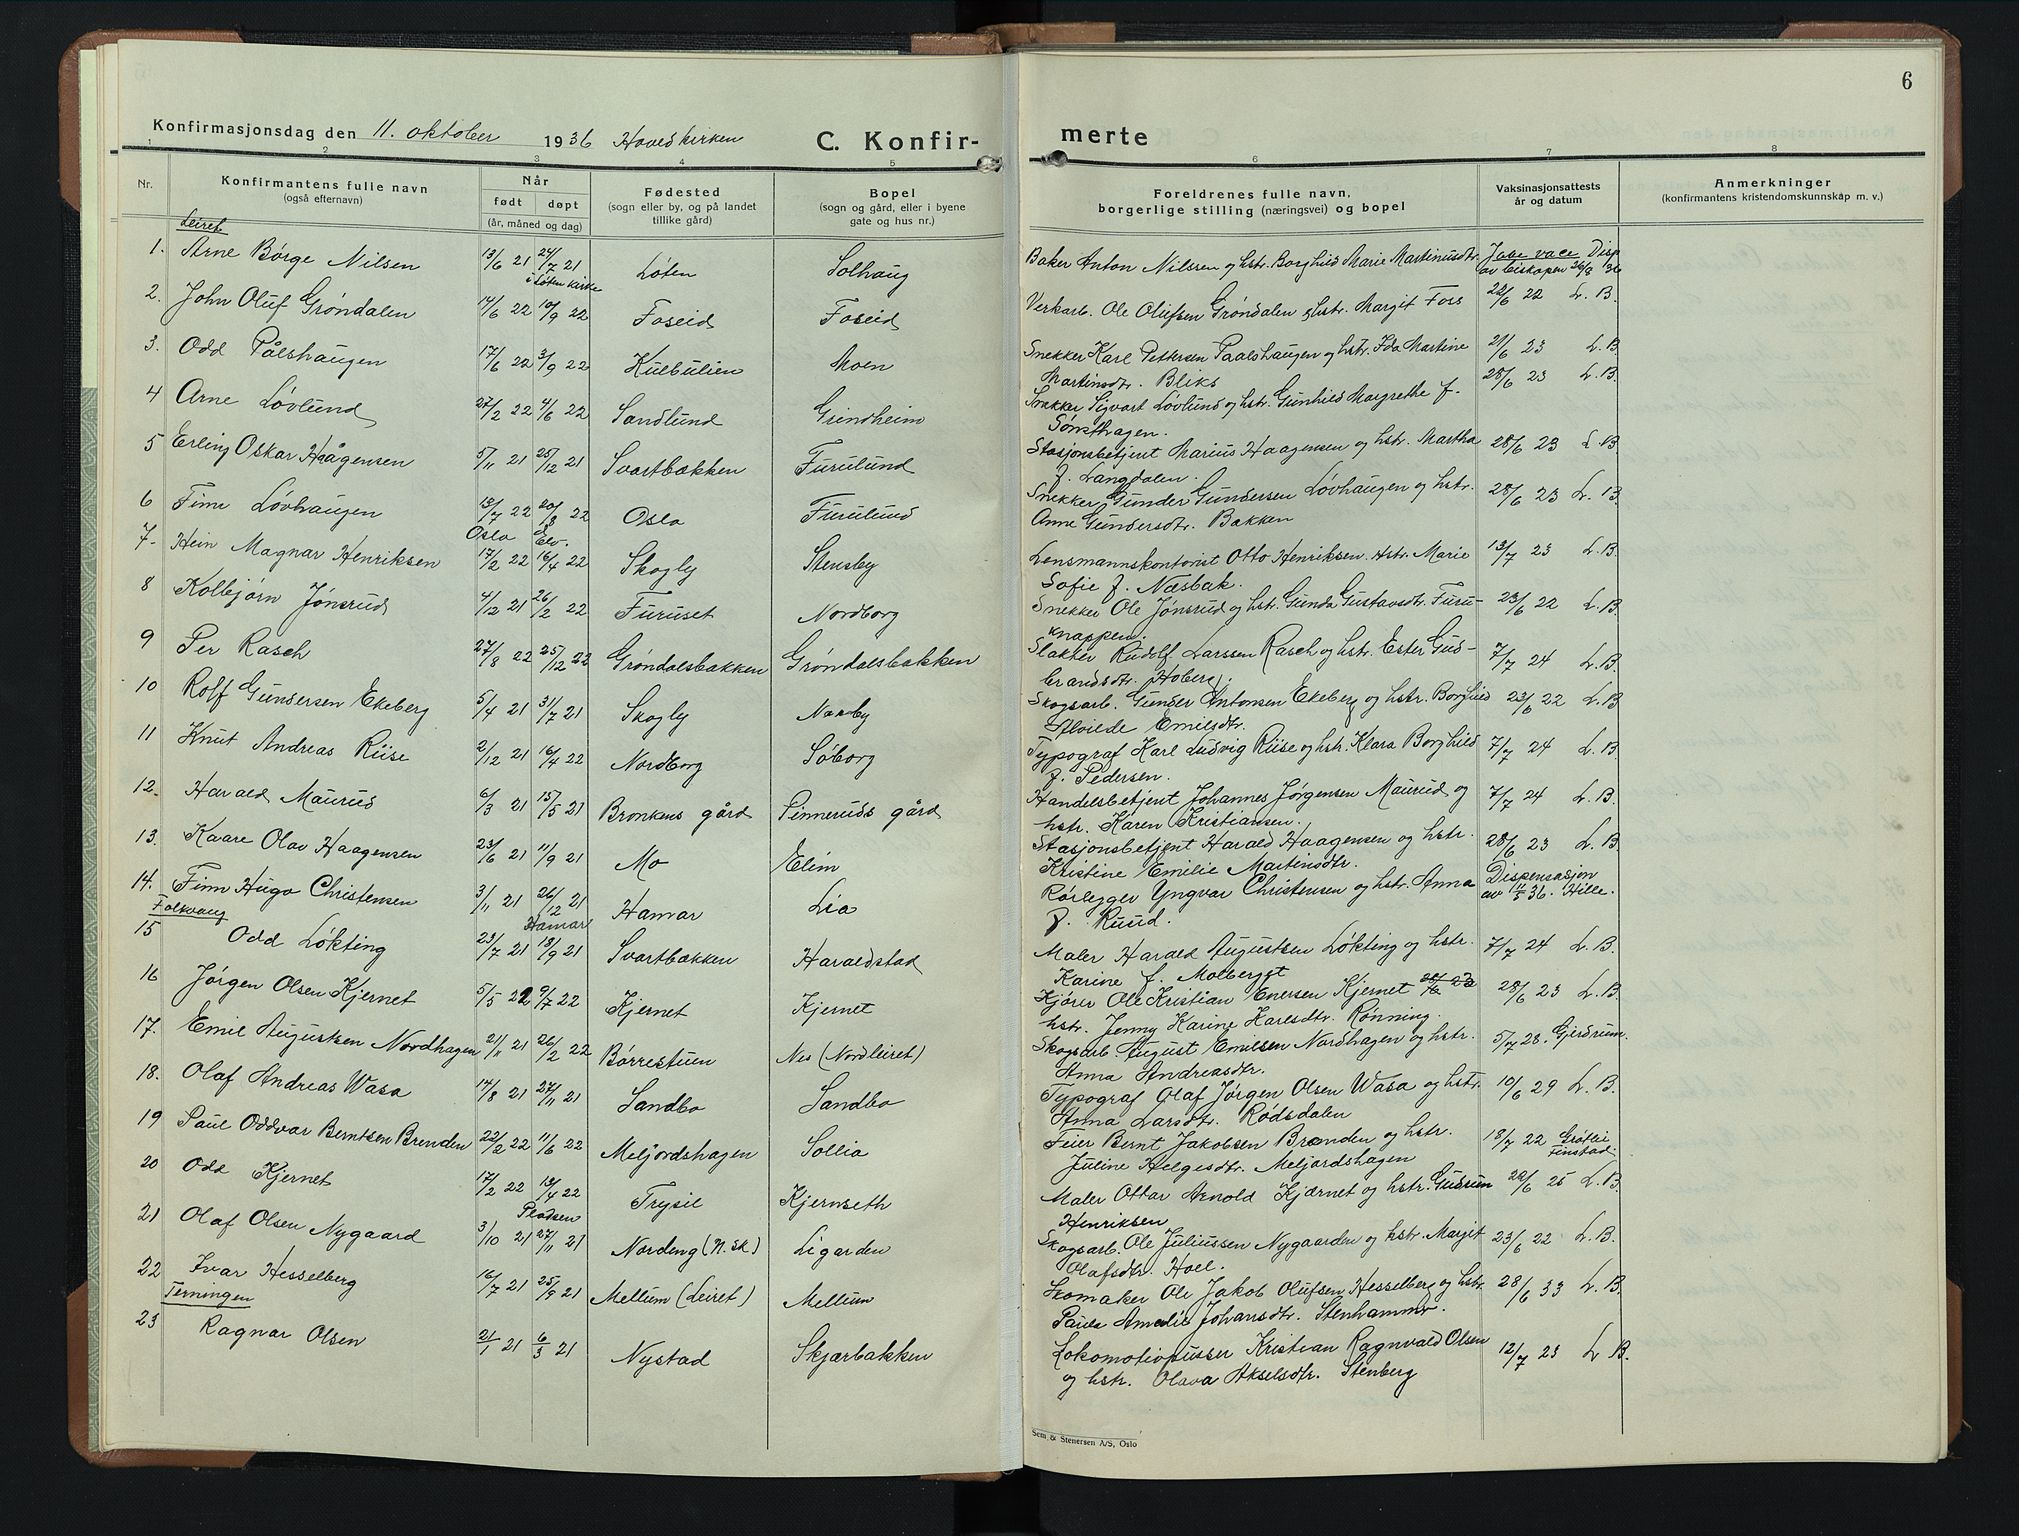 6
Konfirmasjonsdag den 11. oktober 1936 Hovedkirken C. Konfir-
merte
1 2 3 4 5 6 7 8
Nr.
Konfirmantens fulle navn
(også efternavn)
Når
født døpt
(år, måned og dag)
Fødested
(sogn eller by, og på landet
tillike gård)
Bopel
(sogn og gård, eller i byene
gate og hus nr.)
Foreldrenes fulle navn,
borgerlige stilling (næringsvei) og bopel
Vaksinasjonsattests
år og datum
Anmerkninger
(konfirmantens kristendomskunnskap m. v.)
Leiret
1. Arne Børge Nilsen 13/6 21 24/7 21 Løten Solhaug Baker Anton Nilssen og hstr. Borghild Marie Martinusdtr.
i Løten kirke
av biskopen 26/8 36
2. John Oluf Grøndalen 14/6 22 10/9 22 Foseid Foseid Verkarb. Ole Olufsen Grøndalen og hstr. Margit Foss 22/6 22 L. B.
3. Odd Pålshaugen 17/6 22 3/9 22 Kulbulien Moen Snekker Karl Pettersen Paalshaugen og hstr. Ida Martine 21/6 23 L. B.
Martinsdtr. Bliks
4 Arne Løvlund 27/2 22 4/6 22 Sandlund Grindheim Snekker Sigvart Løvlund og hstr. Gunhild Margrethe f. 28/6 23 L. B.
Sønsthagen.
5 Erling Oskar Haagensen 5/11 21 25/12 21 Svartbækken Furulund Stasjonsbetjent Marius Haagensen og hstr. Martha 28/6 23 L. B.
f. Langdalen.
6 Finn Løvhaugen 13/7 22 20/8 22 Oslo Furulund Snekker Gunder Gundersen Løvhaugen og hstr. 28/6 23 L. B.
Oslo Elv.
Anne Gundersdtr. Bakken
7. Hein Magnar Henriksen 17/2 22 16/4 22 Skogly Stensby Lensmannskontorist Otto Henriksen. Hstr. Marie 13/7 23 L. B.
Sofie f. Næsbak.
8 Kolbjørn Jønsrud 4/12 21 26/2 22 Furuset Nordborg Snekker Ole Jønsrud og hstr. Gunda Gustavsdtr. Furu- 23/6 22 L. B.
knappen.
9 Per Rasch 27/8 22 25/12 22 Grøndalsbakken Grøndalsbakken Slakter Rudolf Larssen Rasch og hstr. Ester Gud- 7/7 24 L. B.
brandsdtr. Hoberg.
10 Rolf Gundersen Ekeberg 5/4 21 31/7 21 Skogly Norby Skogsarb. Gunder Antonsen Ekeberg og hstr. Borghild 23/6 22 L. B.
Alvilde Emilsdtr.
11 Knut Andreas Riise 2/12 21 16/4 22 Nordborg Søborg Typograf Karl Ludvig Riise og hstr. Klara Borghild 7/7 24 L. B.
f. Pedersen.
12. Harald Maurud 6/3 21 15/5 21 Bronkens gård Sinneruds gård Handelsbetjent Johannes Jørgensen Maurud og 7/7 24 L. B.
hstr. Karen Kristiansen.
13. Kaare Olav Haagensen 23/6 21 11/9 21 Mo Elim Stasjonsbetjent Harald Haagensen og hstr. 28/6 23 L. B.
Kristine Emilie Martinsdtr.
14. Finn Hugo Christensen 3/11 21 26/12 21 Hamar Lia Rørlegger Yngvar Christensen og hstr. Anna Dispensasjon
Hamar
f. Ruud. av 11/5 36. Hille.
Folkvang
15 Odd Løkting 23/7 21 18/9 21 Svartbækken Haraldstad Maler Harald Augustsen Løkting og hstr. 7/7 24 L. B.
Karine f. Molberget
16 Jørgen Olsen Kjernet 5/5 22 9/7 22 Kjernet Kjernet Kjører Ole Kristian Enersen Kjernet 28/6 23 L. B.
hstr. Jenny Karine Karlsdtr. Rønning.
17. Emil Augustsen Nordhagen 21/11 21 26/2 22 Børrestuen Nes (Nordleiret) Skogsarb August Emilsen Nordhagen og hstr. 5/7 28. Gjerdrum.
Anna Andreasdtr.
18. Olaf Andreas Wasa 14/8 21 27/11 21 Sandbo Sandbo Typograf Olaf Jørgen Olsen Wasa og hstr. 10/6 29 L. B.
Anna Larsdtr. Rødsdalen
19 Paul Oddvar Berntsen Brenden 22/2 22 11/6 22 Meljordshagen Sollia Feier Bernt Jakobsen Brenden og hstr. 18/7 22 Grøtli
Finstad
Juline Helgesdtr. Meljordshagen
20 Odd Kjernet 17/2 22 13/4 22 Trysil Kjernseth Maler Ottar Arnold Kjærnet og hstr. Gudrun 22/6 25 L. B.
Pladsen
Henriksen
21 Olaf Olsen Nygaard 3/10 21 27/11 21 Nordeng (N. Sk.) Ligarden Skogsarb. Ole Juliussen Nygaarden og hstr. Margit 23/6 22 L. B.
Olafsdtr. Hoel.
22 Ivar Hesselberg 16/7 21 25/9 21 Mellum (Leiret) Mellum Skomaker Ole Jakob Olufsen Hesselberg og hstr. 28/6 33 L. B.
Paula Amalie Johansdtr. Stenhammer.
Terningen
23 Ragnar Olsen 21/1 21 6/3 21 Nystad Skjærbakken Lokomotivpusser Kristian Ragnvald Olsen 12/7 23 L. B.
og hstr. Olava Akselsdtr. Stenberg
Sem & Stenersen A/S, Oslo